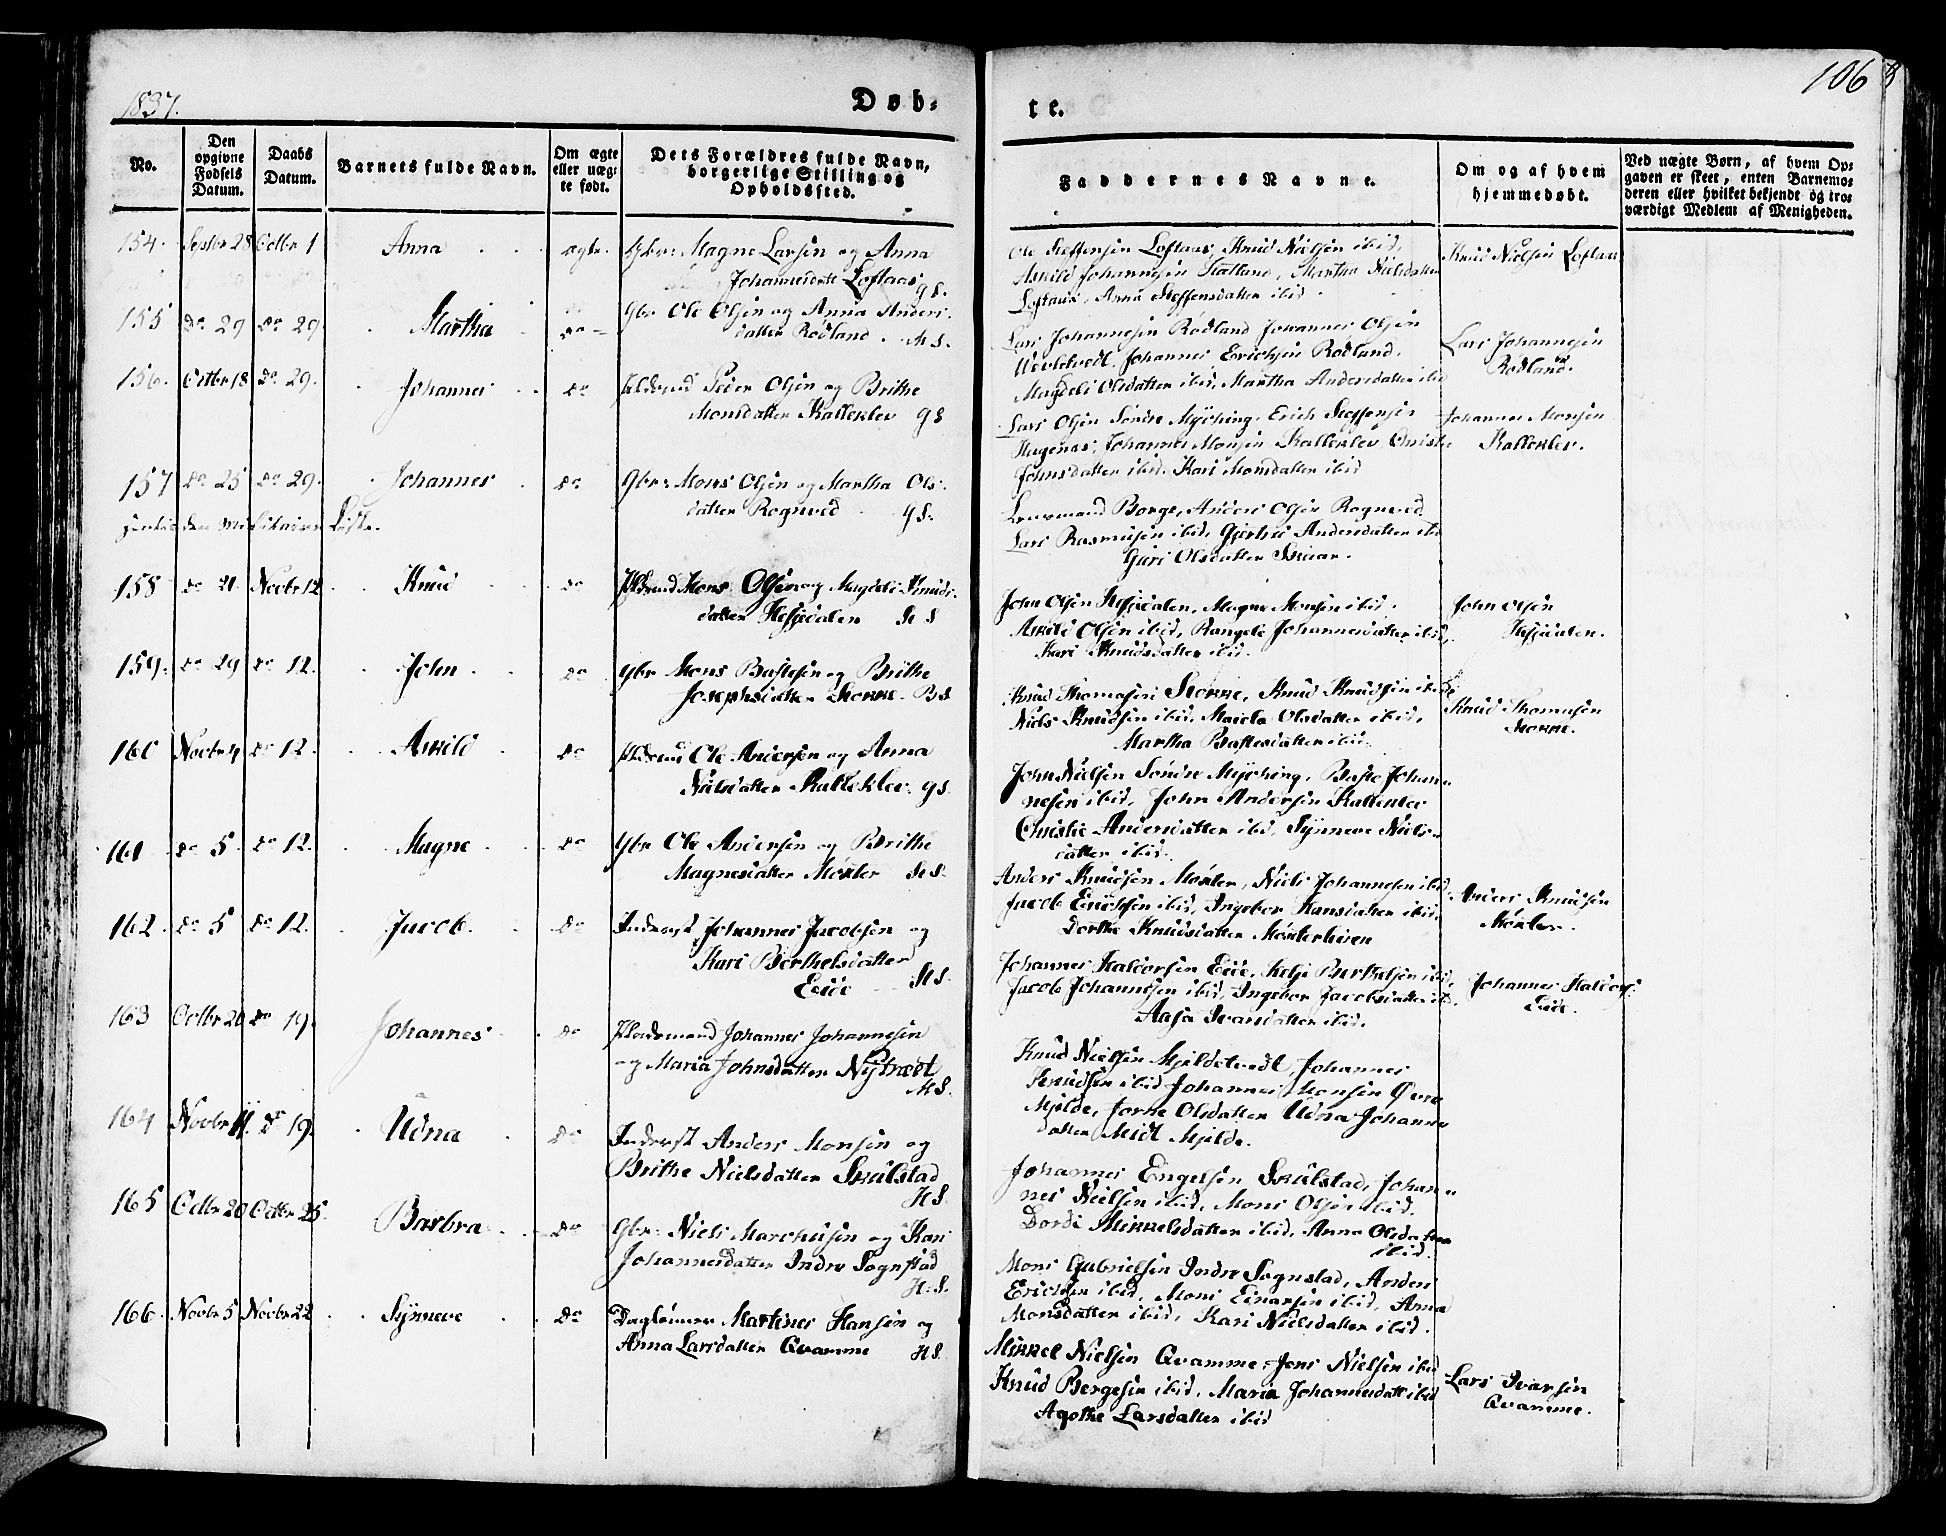 1837.
Døb-
te.
106
No.
Den opgivne Fødsels Datum.
Daabs Datum.
Barnets fulde Navn.
Om ægte eller uægte født.
Dets Forældres fulde Navn, borgerlige Stilling og Opholdssted.
Faddernes Navne.
Om og af hvem hjemmedøbt.
Ved uægte Børn, af hvem Opgaven er skeet, enten Barnemoderen eller hvilket bekjendt og troværdigt Medlem af Menigheden.
154. Septbr 28 Octbr 1 Anna ægte. Gbr: Magne Larsen og Anna
Johannesdatt Loftaas GS.
Ole Steffensen Loftaas, Knud Nielsen ibid,
Askild Johannesen Hatland, Martha Nielsdatter
Loftaas, Anna Steffensdatter ibid
Knud Nielsen Loftaas
155 do 29 do 29 Martha do Gbr Ole Olsen og Anna Anders-
datter Rødland. MS.
Lars Johannesen Rødland Johannes Olsen
Johannes Erichsen Rødland.
Magdeli Olsdatter ibid, Martha Andersdatter ibid
Lars Johannesen
Rødland.
156. Octbr 18 do 29. Johannes do Peder Olsen og Brithe
Monsdatter Kalleklev GS
Lars Olsen Søndre Myching, Erich Steffensen
Johannes Monsen Kalleklev, Christie
Johnsdatter ibid. Kari Monsdatter ibid
Johannes Monsen
Kalleklev.
157 do 25 do 29. Johannes do Gbr: Mons Olsen og Martha Ols-
datter Rognved GS.
Lensmand Borge, Anders Olsen Rognved
Lars Rasmusen ibid, Gjertrud Andersdatter ibid
Guri Olsdatter
158 do 21 Novbr 12 Knud do Mons Olsen og Magdeli Knuds-
datter Hesjedalen HS
John Olsen Hesjedalen, Magne Monsen ibid.
Askild Olsen ibid, Rangele Johannesdatter ibid,
Kari Knudsdatter ibid.
John Olsen
Hesjedalen.
159. do 29 do 12. John do Gbr Mons Bastesen og Brithe
Josephsdatter Storke. BS
Knud Thomasen Storke, Knud Knudsen ibid
Niels Knudsen ibid, Olsdatter ibid,
Martha Bastesdatter ibid.
Knud Thomasen
Storke.
160 Novbr 4 do 12. Askild do Ole Andersen og Anna
Nielsdatter Kalleklev. GS.
John Nielsen Søndre Myching, Baste Johan-
nesen ibid, John Andersen Kalleklev
Christie Andersdatter ibid, Synneve Niels-
datter ibid.
161 do 5. do 12. Magne do Gbr Ole Andersen og Brithe
Magnesdatter Møster HS.
Anders Knudsen Møster, Niels Johannesen ibid,
Jacob Erichsen ibid, Ingebor Hansdatter ibid,
Dorthe Knudsdatter
Anders Knudsen
Møster.
162 do 5 do 12. Jacob. do Inderst Johannes Jacobsen og
Kari Berthelsdatter
Eide HS.
Johannes Haldorsen Eide, Helje Berthelsen ibid,
Jacob Johannesen ibid, Ingebor Jacobsdatter ib.
Aasa Ivarsdatter ibid.
Johannes Haldors:
Eide.
163 Octbr 20 do 19. Johannes do Johannes Johannesen
og Maria Johnsdatter Nytvedt
MS.
Knud Nielsen Mjeldetvedt, Johannes
Knudsen ibid Johannes Monsen Øvre
Mjelde, Jorne Olsdatter Udna Johannes
datter Midt Mjelde.
164 Novbr 11. do 19. Udna do Inderst Anders Monsen og
Brithe Nielsdatter Skulstad
HS.
Johannes Engelsen Skulstad, Johan-
nes Nielsen ibid, Mons Olsen ibid.
Dordi Mikkelsdatter ibid, Anna Olsdatter
ibid.
165 Octbr 20 Octbr 25. Barbra do Gbr: Niels Marchusen og Kari
Johannesdatter Indre Sognstad
H.S.
Mons Gabrielsen Indre Sognstad, Anders
Erichsen ibid, Mons Einarsen ibid, Anna
Monsdatter ibid, Kari Nielsdatter ibid.
166. Novbr 5 Novbr 22 Synneve do Dagleiner Martines Hansen og
Anna Larsdatter Qvamme HS.
Mikkel Nielsen Qvamme, Jens Nielsen ibid
Knud Bergesen ibid, Maria Johannesdatt ibid
Agothe Larsdatter ibid
Lars Ivarsen
Qvamme.